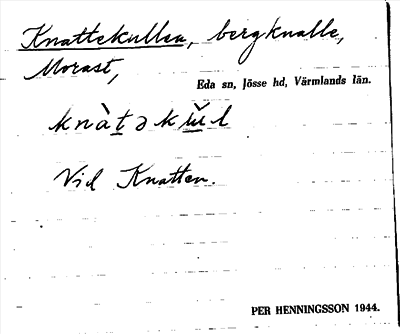 Knattekullen, bergknalle,
Morast,
Eda sn, Jösse hd, Värmlands län.
knàt̲əkŭ̲l
Vid Knatten.
PER HENNINGSSON 1944.